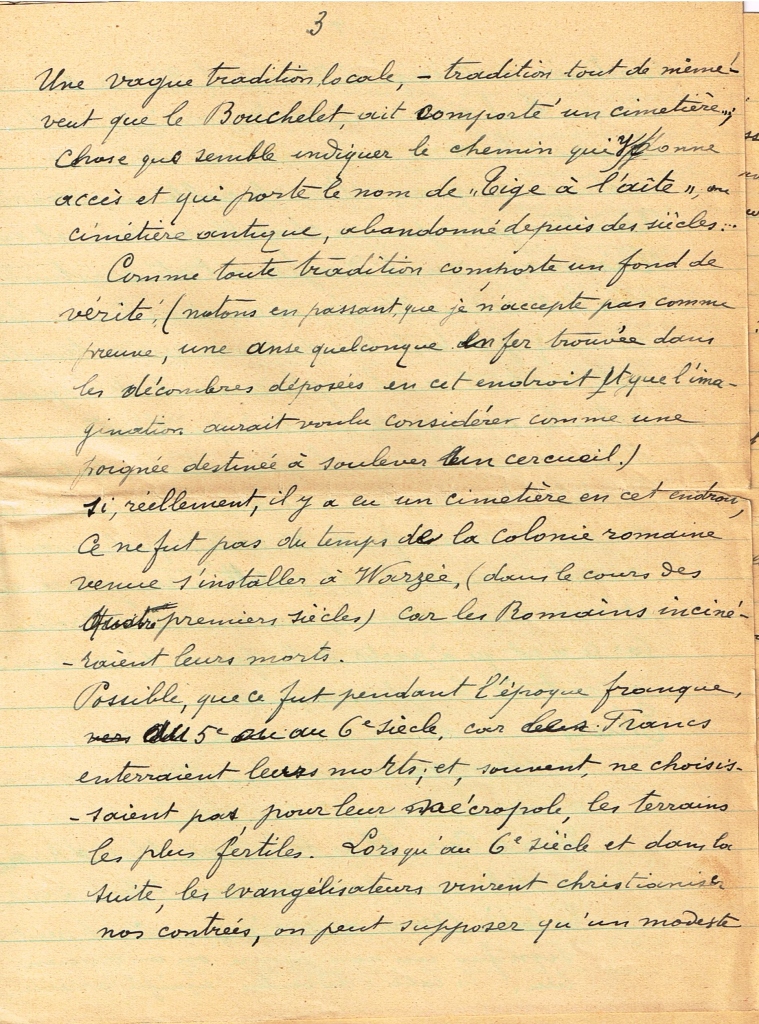 3
Une vague tradition locale, – tradition tout de même –
veut que le Bouchelet, ait comporté un cimetière,;
chose que semble indiquer le chemin qui y donne
accès et qui porte le nom de „Tige à l'aîte", ou
cimétière antique, abandonné depuis des siècles...
Comme toute tradition comporte un fond de
vérité, (notons en passant, que je n'accepte pas comme
preuve, une anse quelconque en fer trouvée dans
les décombres déposées en cet endroit et que l'ima-
gination aurait voulu considérer comme une
poignée destinée à soulever un cercueil.)
si, réellement, il y a eu un cimetière en cet endroit,
ce ne fut pas du temps de la colonie romaine
venue s'installer à Warzée, (dans le cours des
quatre premiers siècles) car les Romains inciné-
-raient leurs morts.
Possible, que ce fut pendant l'époque franque,
vers du 5e ou au 6e siècle, car les Francs
enterraient leurs morts; et, souvent, ne choisis-
-saient pas pour leur nécropole, les terrains
les plus fertiles. Lorsqu'au 6e siècle et dans la
suite, les evangélisateurs vinrent christianiser
nos contrées, on peut supposer qu'un modeste